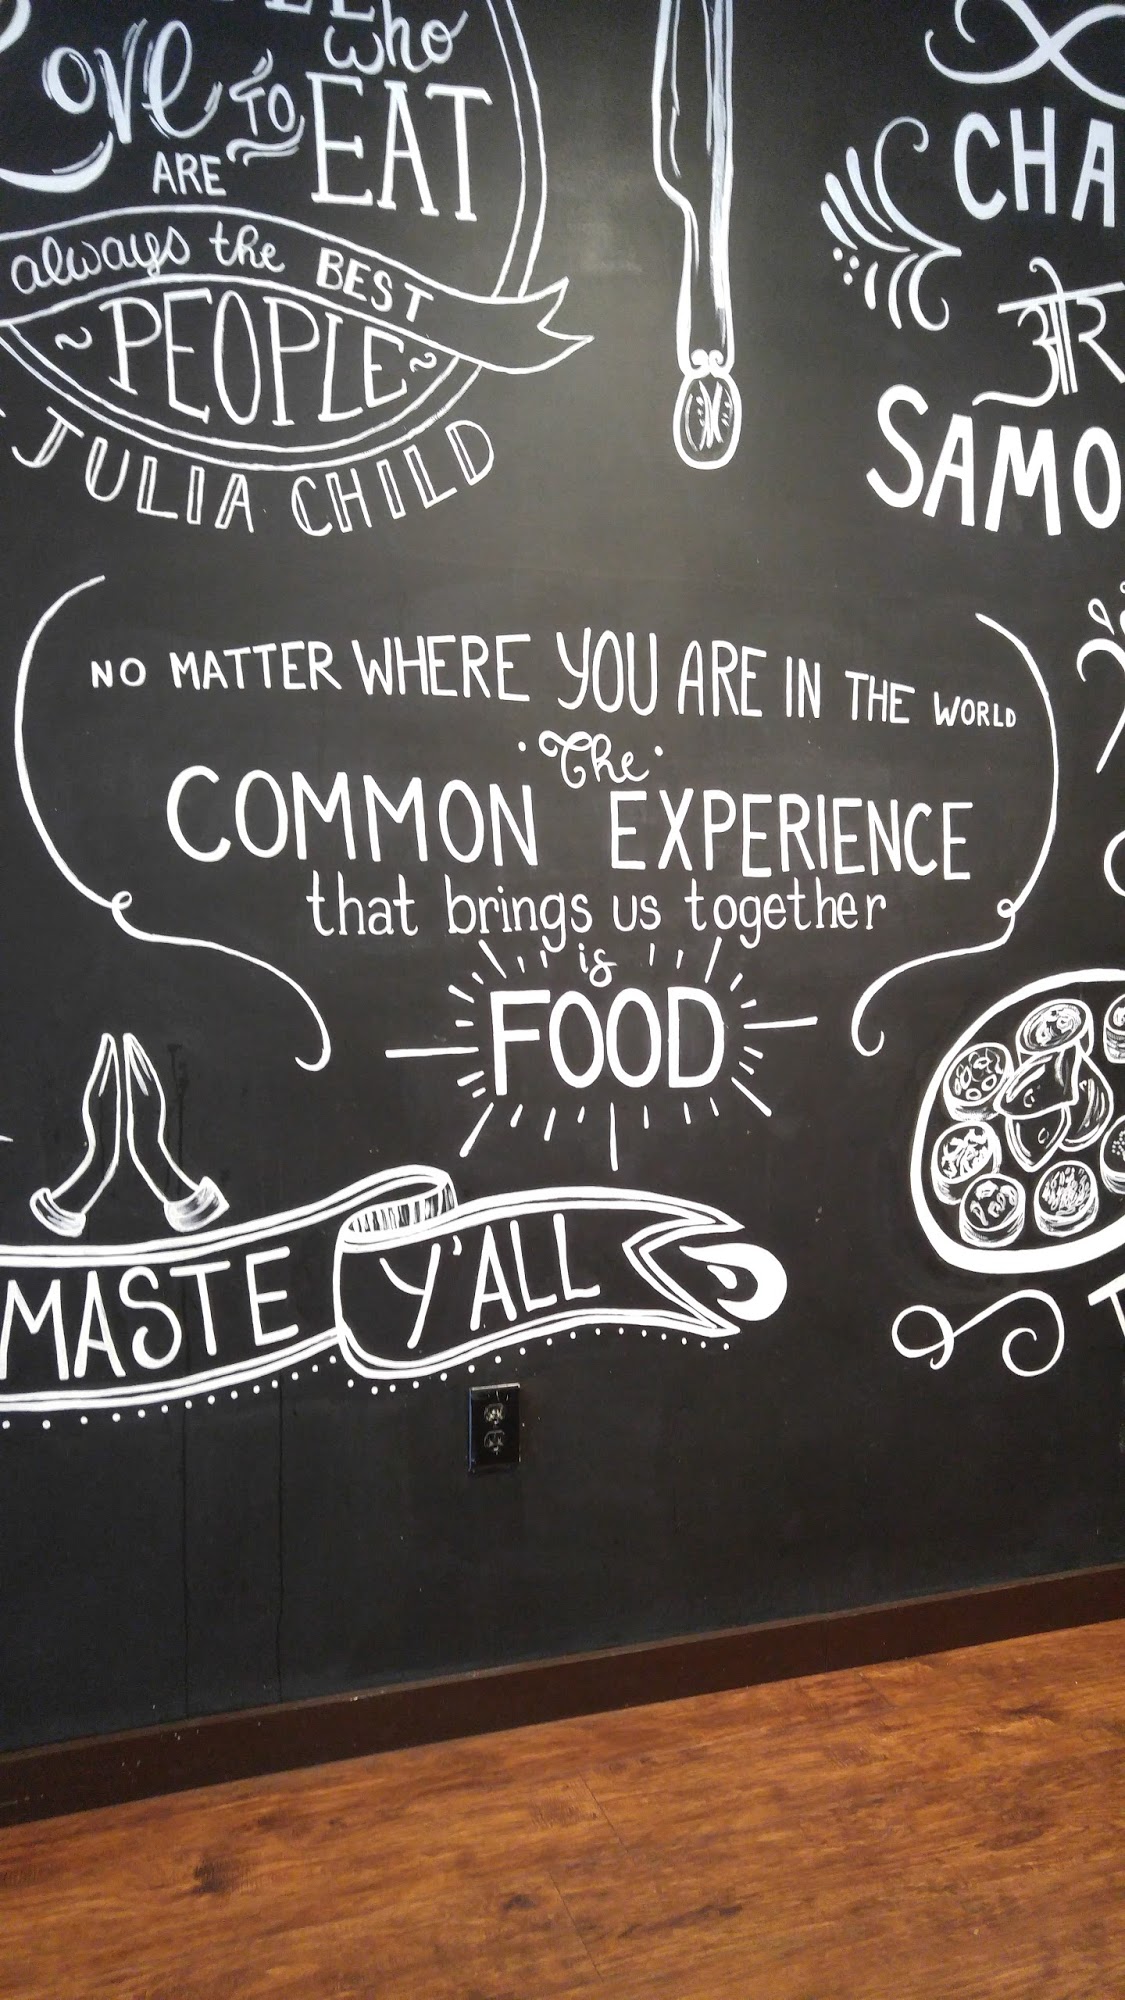 who
Love TO EAT
ARE
always the BEST
PEOPLE
JULIA CHILD
CHA
और
SAMO
NO MATTER WHERE YOU ARE IN THE WORLD
The
COMMON EXPERIENCE
that brings us together
is
FOOD
MASTE Y'ALL